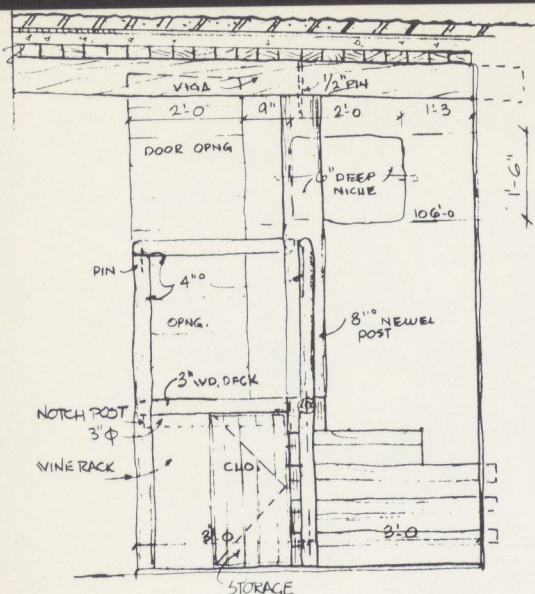 VIGA
1/2" PIN
2'-0
9"
2'-0
1'-3
DOOR OPNG
6" DEEP
NICHE
1'-6"
106'-0
PIN
4"ᵒ
OPNG.
8"ᵒ NEWEL
POST
3" WD. DECK
NOTCH POST
3"φ
WINE RACK
CLO.
3'-0
3'-0
STORAGE